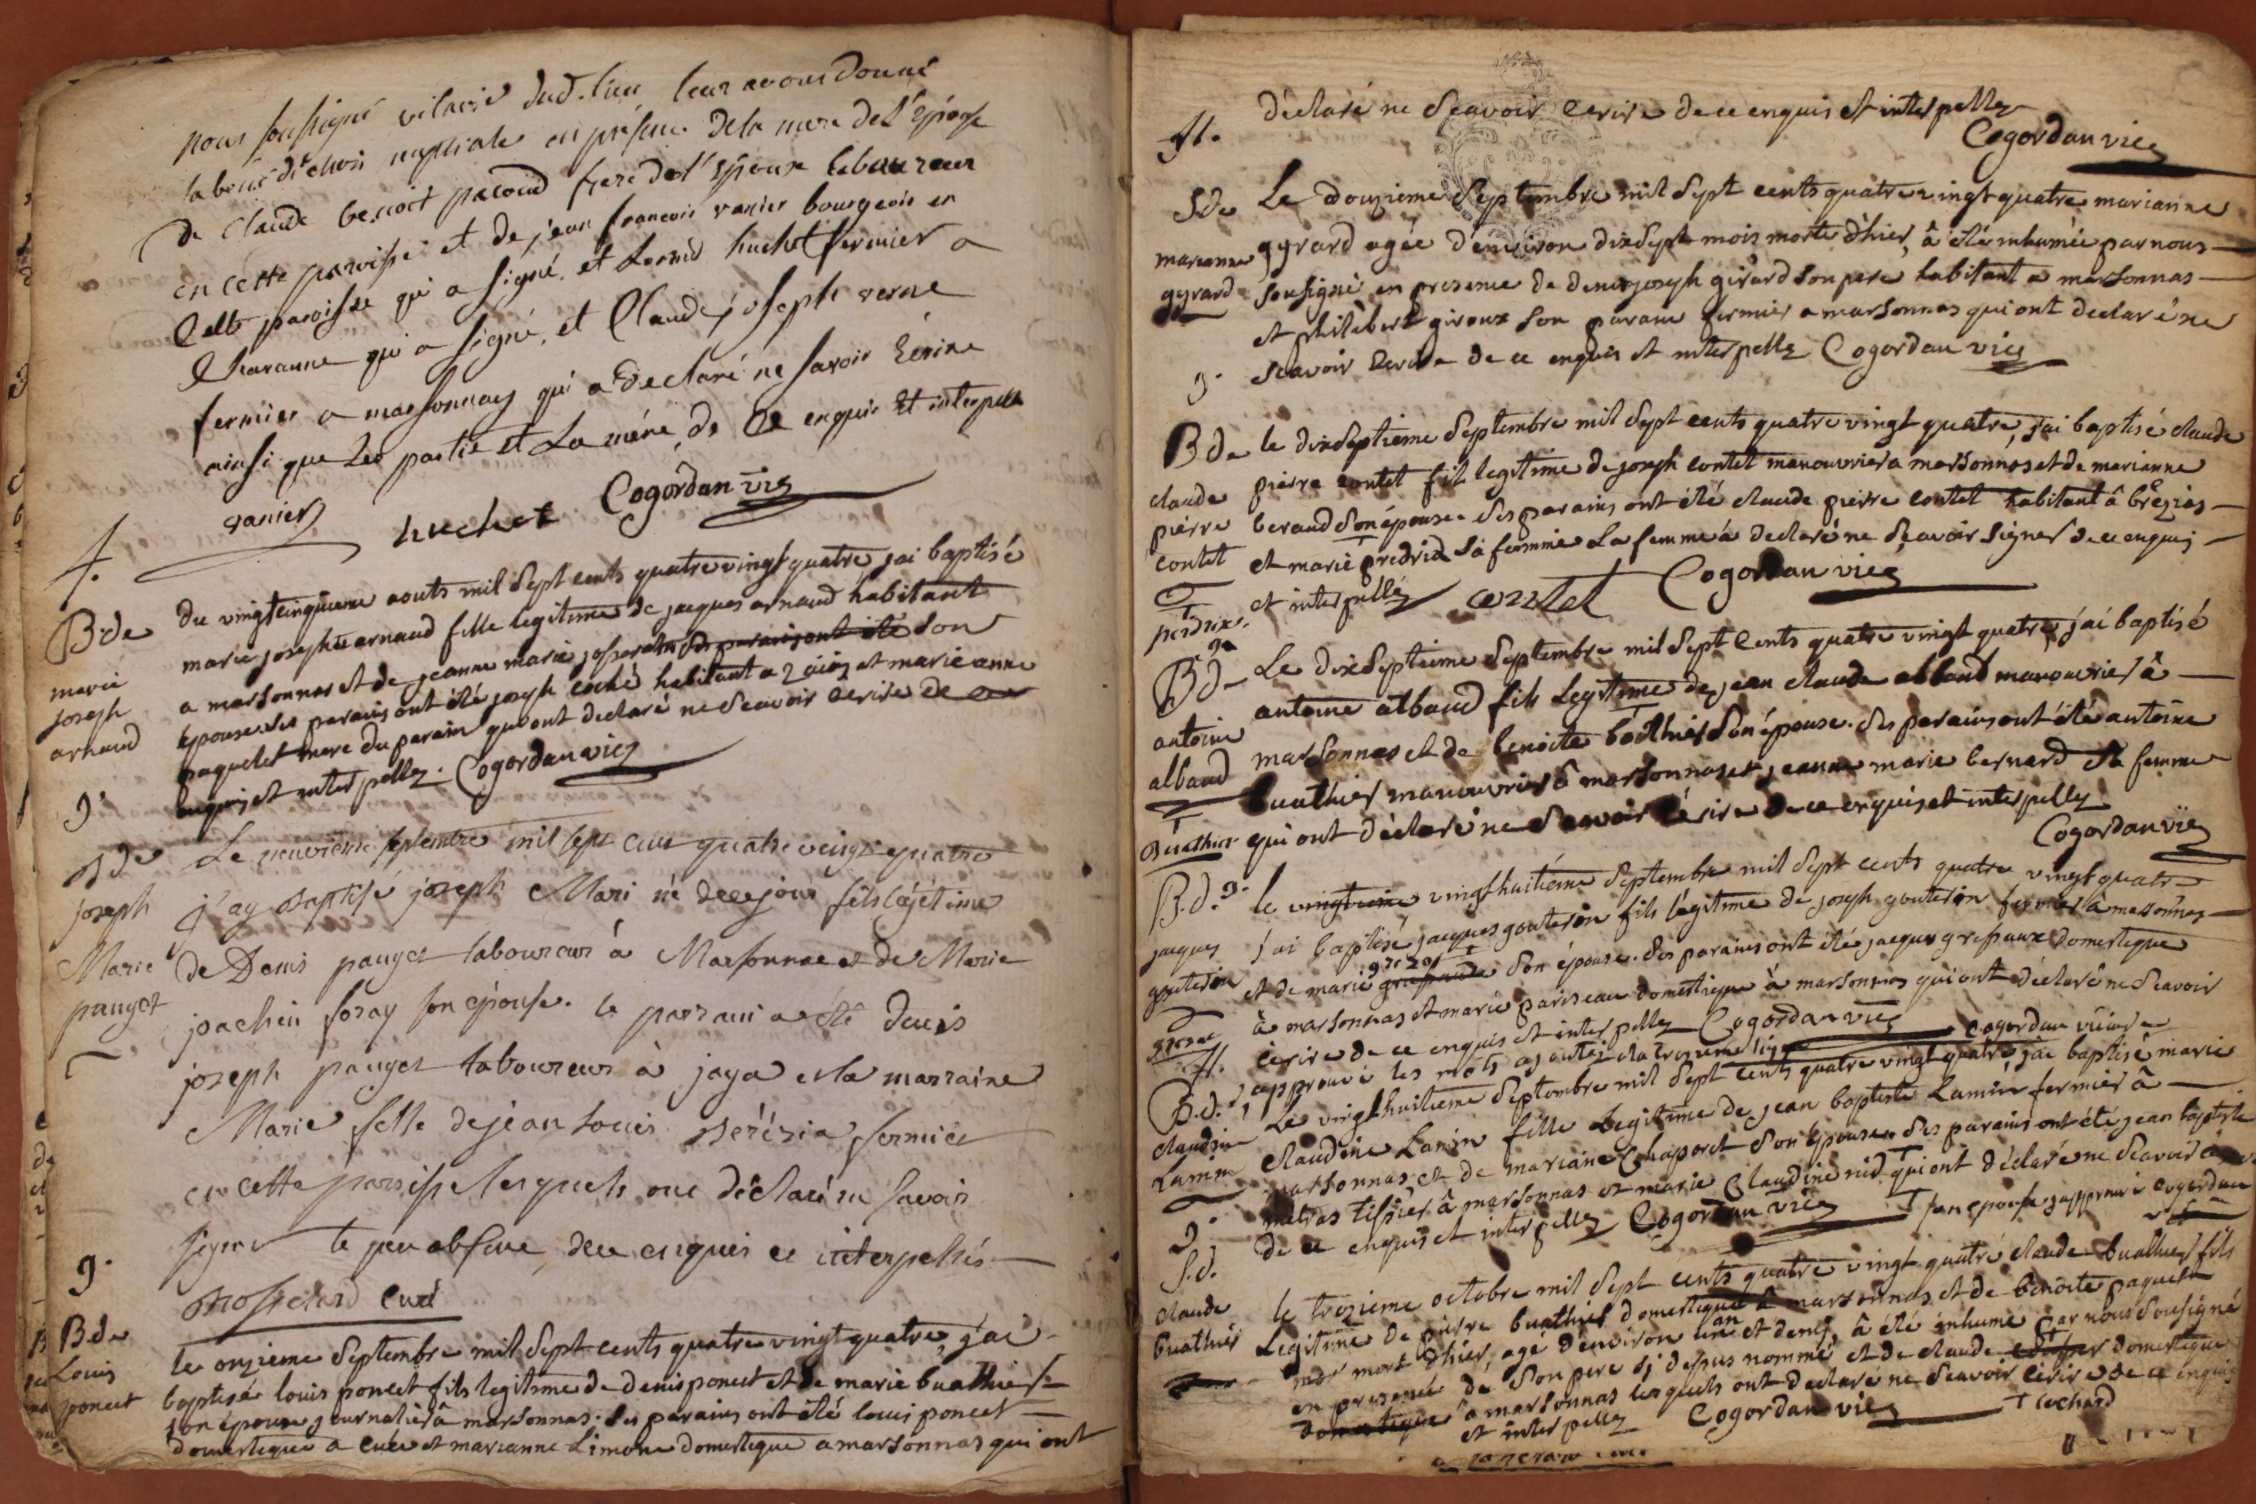 nous soussigné vicaire dud. lieu leur avons donné
la bénédiction nuptiale en présence de la mere de l'épouse
de Claude benoit pacoud frere de l'époux laboureur
en cette paroisse et de jean francois vanier bourgeois en
cette paroisse qui a signé, et huchet fermier a
Charanne qui a signé, et Claude joseph verne
fermier a marsonnas qui a declaré ne savoir Ecrire
ainsi que les partie et La mére, de Ce enquis Et interpellé
vanier huchet Cogordan vic
f.
B de
marie
joseph
arnaud
Du vingtcinquieme aouts mil sept cents quatre vingt quatre jai baptisé
marie josephte arnaud fille legitime de jacques arnaud habitant
a marsonnas et de jeanne marie josserand ses parains ont été son
épouse. ses parains ont été joseph coché habitant a et marie anne
paquelet mere du parain qui ont declaré ne scavoir ecrire de ce
enquis et interpellez. Cogordan vic
g.
B de
joseph
Marie
pauget
Le neuvieme septembre mil sept cent quatre vingt quatre
j'ay Baptisé joseph Mari né de ce jour fils légétime
de Denis pauget laboureur à Marsonnas et de Marie
joachin foray son épouse. le parrain a été denis
joseph pauget laboureur à jaya et la marraine
Marie fille de jean Louis Berézia fermier
en cette paroisse lesquels ont déclaré ne savoir
signer le peu absence, de ce enquis et interpellés
curé
g.
B de
Louis
poncet
le onzieme septembre mil sept cents quatre vingt quatre, j'ai
baptisé louis poncet fils legitime de denis poncet et de marie buathier
son épouse journalier à marsonnas. ses parains ont été louis poncet
domestique a cuet et marianne Limone domestique a marsonnas qui ont
déclaré ne scavoir ecrire de ce enquis et interpellez
Cogordan vic
ff.
S de
marianne
gyrard
Le douzieme septembre mil sept cents quatre vingt quatre marianne
gyrard agée d'environ dix sept mois morte d'hier, à été inhumée par nous
sousigné en presence de denis joseph girard son pere habitant a marsonnas
et philibert giroux son parain fermier a marsonnas qui ont declaré ne
scavoir ecrire de ce enquis et interpellez Cogordan vic
g.
B de
claude
pierre
contet
le dixseptieme septembre mil sept cents quatre vingt quatre, j'ai baptisé claude
pierre contet fils legitime de joseph contet manouvrier a marsonnas et de marianne
beraud son épouse. ses parains ont été claude pierre contet habitant à
et marie predrix sa femme La femme à declaré ne scavoir signer de ce enquis
et interpellé contet Cogordan vic
perdrix.
g.
B de
antoine
albaud
Buathier
Le dixseptieme septembre mil sept cents quatre vingt quatre, j'ai baptisé
antoine albaud fils Legitime de jean claude albaud manouvrier à
marsonnas et de benoite son épouse. ses parains ont été antoine
buathier manouvrier à marsonnas et jeanne marie bernard sa femme
qui ont déclaré ne scavoir écrire de ce enquis et interpellez
Cogordan vic
g.
B.d.
jacques
gouteron
le vingtieme vingthuitieme septembre mil sept cents quatre vingt quatre
j'ai baptisé jacques gouteron fils légitime de joseph gouteron fermier à marsonnas
et de marie son épouse. ses parains ont été jacques domestique
à marsonnas et marie pariseau domestique à marsonnas qui ont déclaré ne scavoir
écrire de ce enquis et interpellez Cogordan vic
japprouvé les mots ajoutés a la troisieme ligne Cogordan vicaire
ff.
B.d.
claudine
Lamin
Le vingthuitieme septembre mil sept cents quatre vingt quatre, j'ai baptisé marie
claudine Lamin fille Legitime de jean baptiste Lamin fermier à
marsonnas, et de mariane chaponet son épouse ses parains ont été jean baptiste
tissier à marsonnas et marie claudine nid qui ont déclaré ne scavoir
de ce enquis et interpellez Cogordan vic son épouse japprouvé Cogordan
g.
S.d.
claude
buathier
le treizieme octobre mil sept cents quatre vingt quatre claude buathier fils
Legitime de pierre buathier domestique à marsonnas, et de benoite paquelet
mort d'hier, agé d'environ un an et demy, à été inhumé par nous sousigné
en presence de son pere sy dessus nommé et de claude domestique
domestique a marsonnas lesquels ont declaré ne scavoir ecrire de ce enquis
et interpellez Cogordan vic cochard